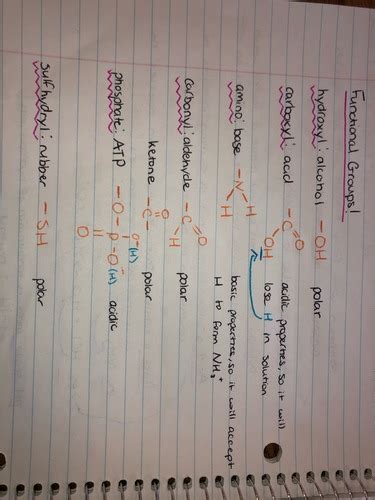 Functional Groups!
hydroxyl: alcohol -OH polar
carboxyl: acid -C=O OH acidic properties, so it will
lose H in solution
amino: base -N-H H basic properties, so it will accept
H to form NH₃⁺
carbonyl: aldehyde -C=O H polar
ketone -C- O polar
phosphate: ATP -O-P-O⁻ (H) O⁻ (H) O acidic
sulfhydryl: rubber -SH polar